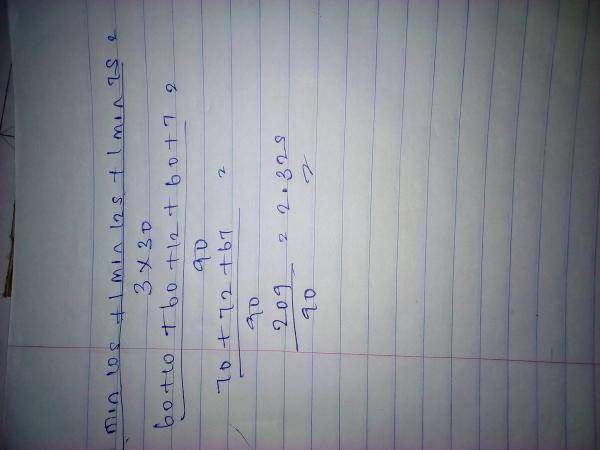 min 10s + 1 min 12s + 1 min 7s =
3 × 30
60+10 + 60 + 12 + 60 + 7 =
90
70 + 72 + 67 =
90
209 = 2.32s
90